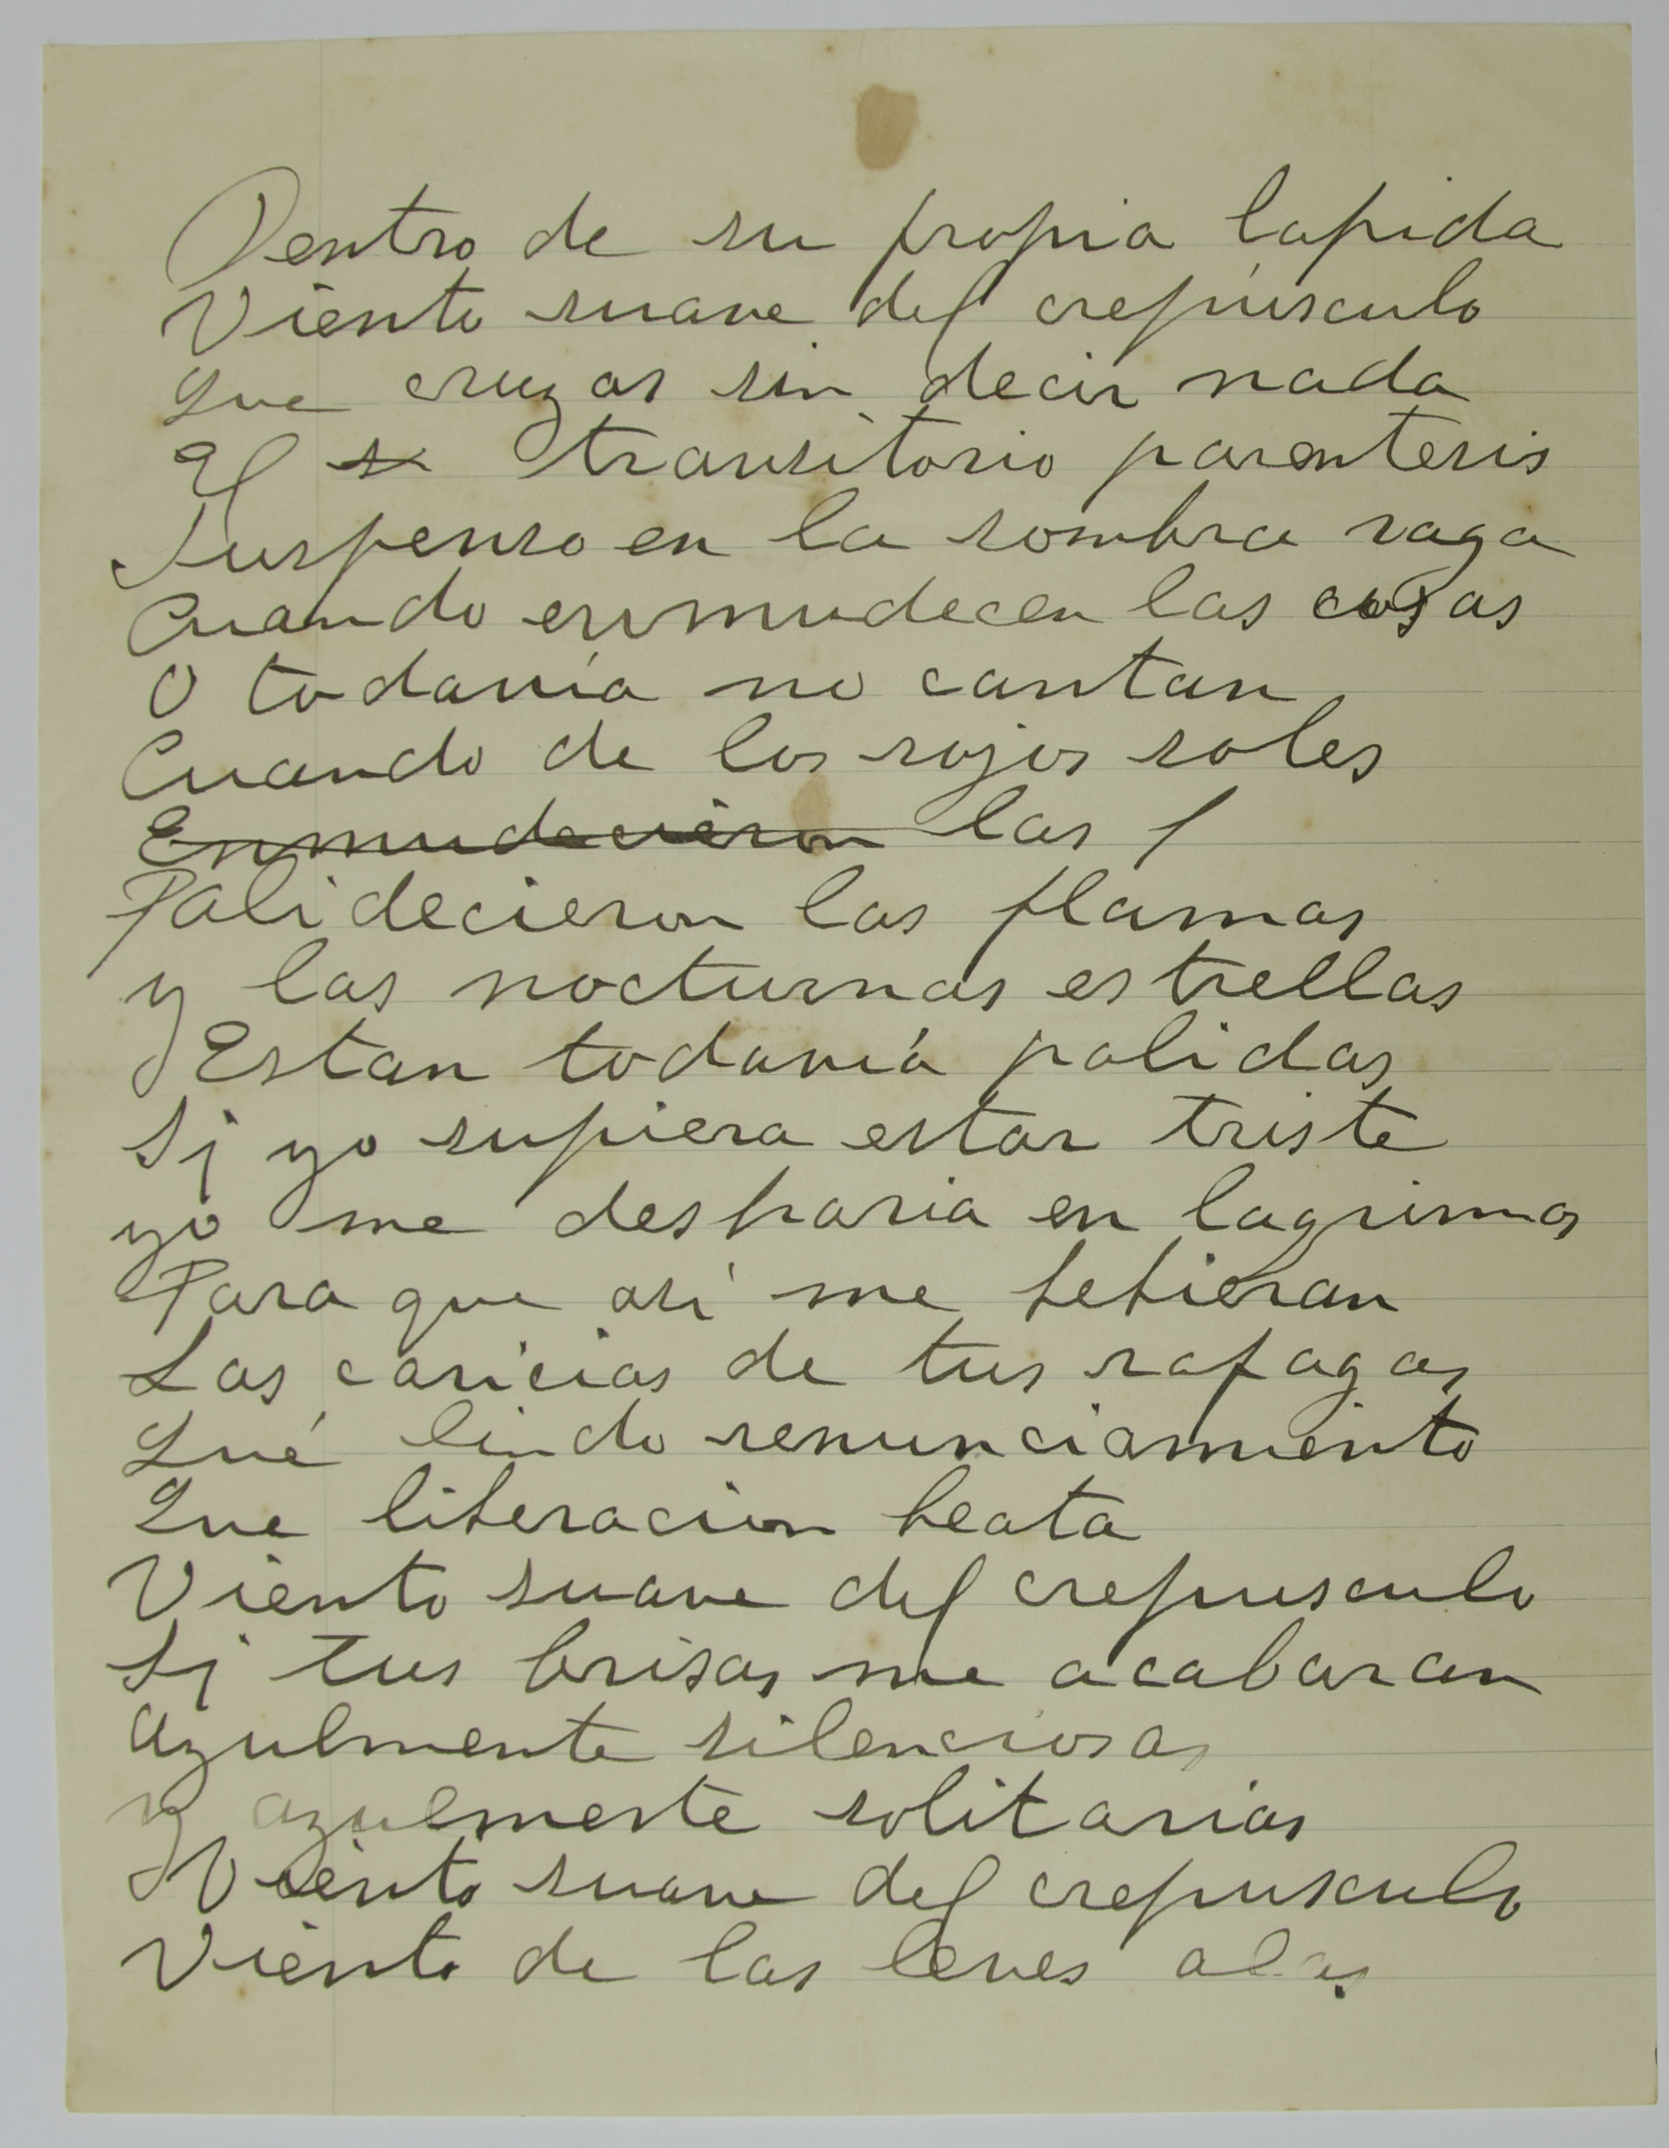 Dentro de su propia lapida
Viento suave del crepúsculo
Que cruzas sin decir nada
El transitorio parentesis
Suspenso en la sombra vaga
Cuando enmudecen las cosas
O todavía no cantan
Cuando de los rojos soles
Enmudecieron las f
Palidecieron las flamas
y las nocturnas estrellas
Estan todavía palidas
Si yo supiera estar triste
yo me desharia en lagrimas
Para que asi me bebieran
Las caricias de tus rafagas
Qué lindo renunciamiento
Que liberacion beata
Viento suave del crepusculo
Si tus brisas me acabaran
azulmente silenciosas
y azulmente solitarias
Viento suave del crepusculo
Viento de las leves alas